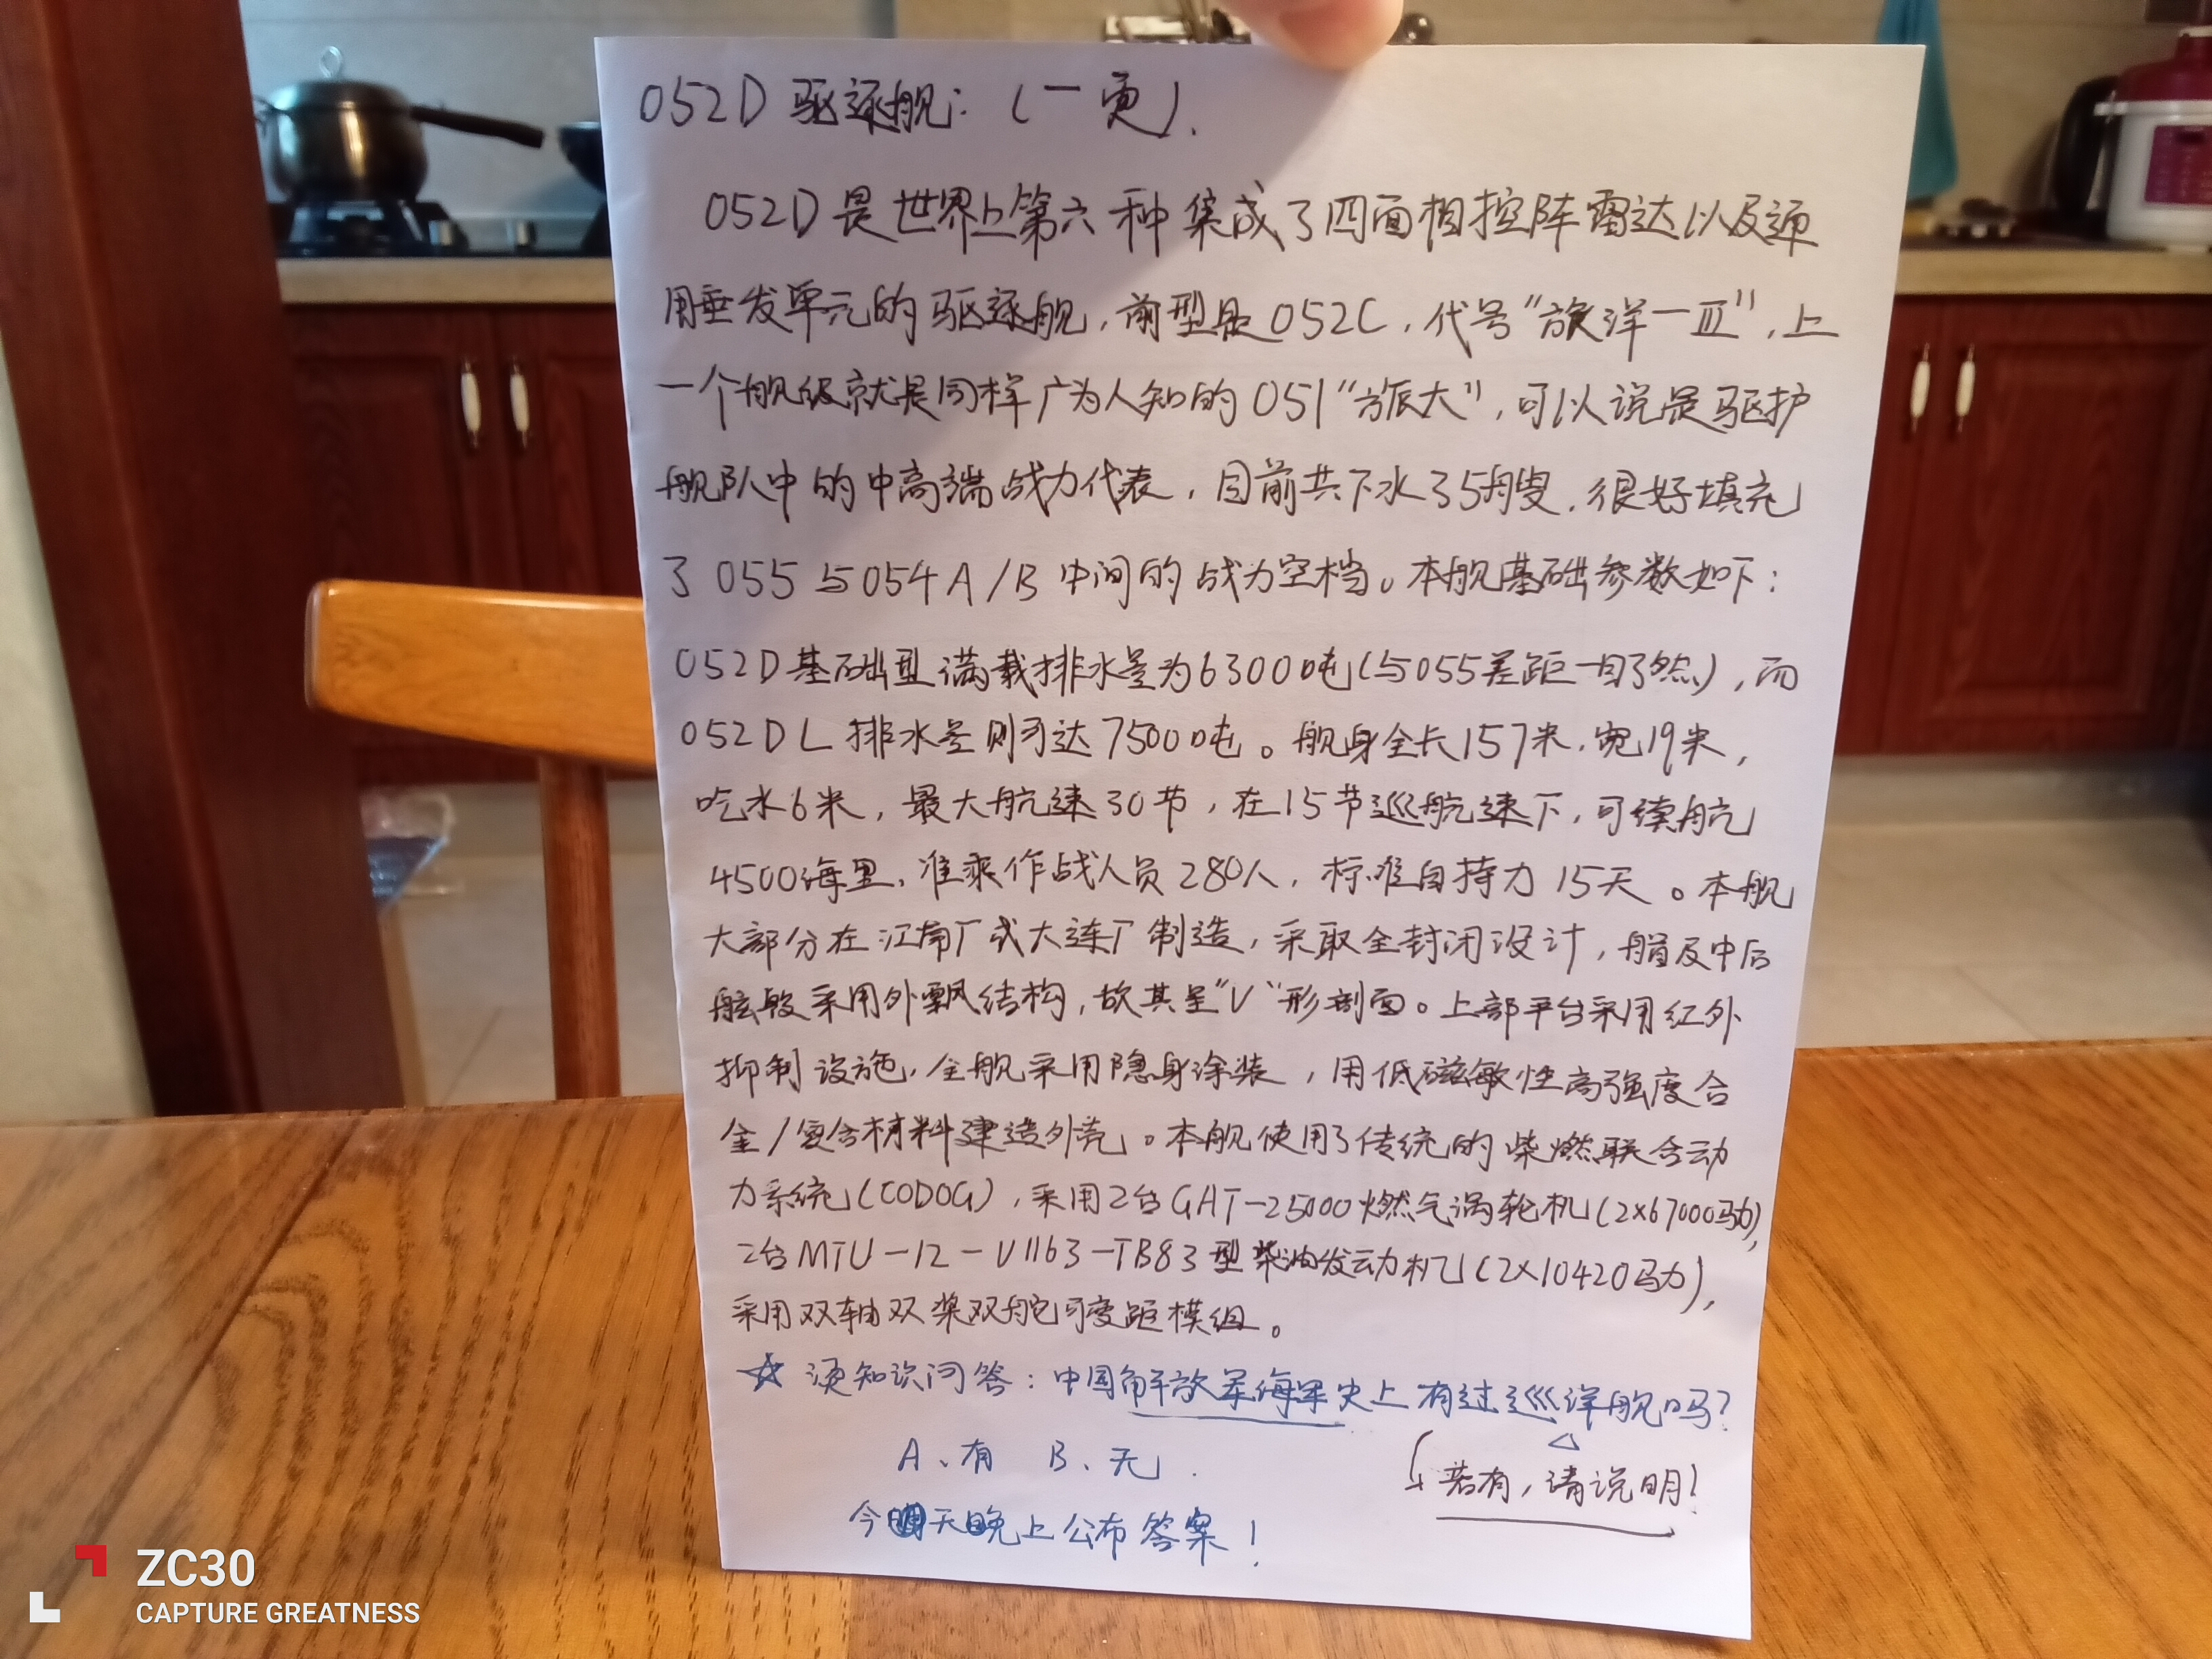 052D 驱逐舰：（一更）.
052D是世界上第六种集成了四面相控阵雷达以及通
用垂发单元的驱逐舰，前型是052C，代号“旅洋一Ⅲ”，上
一个舰级就是同样广为人知的051“旅大”，可以说是驱护
舰队中的中高端战力代表，目前共下水了35艘，很好填充
了055与054A/B中间的战力空档。本舰基础参数如下：
052D基础型满载排水量为6300吨（与055差距一目了然），而
052DL排水量则可达7500吨。舰身全长157米，宽19米，
吃水6米，最大航速30节，在15节巡航速下，可续航
4500海里、准乘作战人员280人，标准自持力15天。本舰
大部分在江南厂或大连厂制造，采取全封闭设计，艏及中后
舷段采用外飘结构，故其呈“V”形剖面。上部平台采用红外
抑制设施，全舰采用隐身涂装，用低磁敏性高强度合
金/复合材料建造外壳。本舰使用了传统的柴燃联合动
力系统（CODOG），采用2台GHT-25000燃气涡轮机（2×67000马力），
2台MTU-12-V1163-TB83型柴油发动机（2×10420马力），
采用双轴双桨双舵可变距模组。
☆ 须知识问答：中国解放军海军史上有过巡洋舰吗？
A、有 B、无.
若有，请说明！
今明天晚上公布答案！
ZC30
CAPTURE GREATNESS